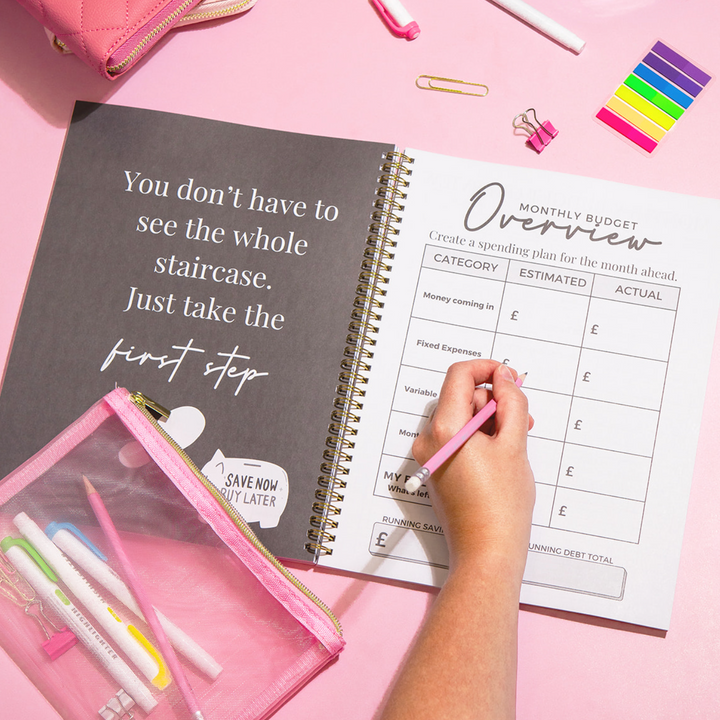 You don't have to
see the whole
staircase.
Just take the
first step
SAVE NOW
BUY LATER
HIGHLIGHTER
MONTHLY BUDGET
Overview
Create a spending plan for the month ahead.
CATEGORY ESTIMATED ACTUAL
Money coming in £ £
Fixed Expenses £ £
Variable £
£
MY £ £
What's left
RUNNING DEBT TOTAL
£